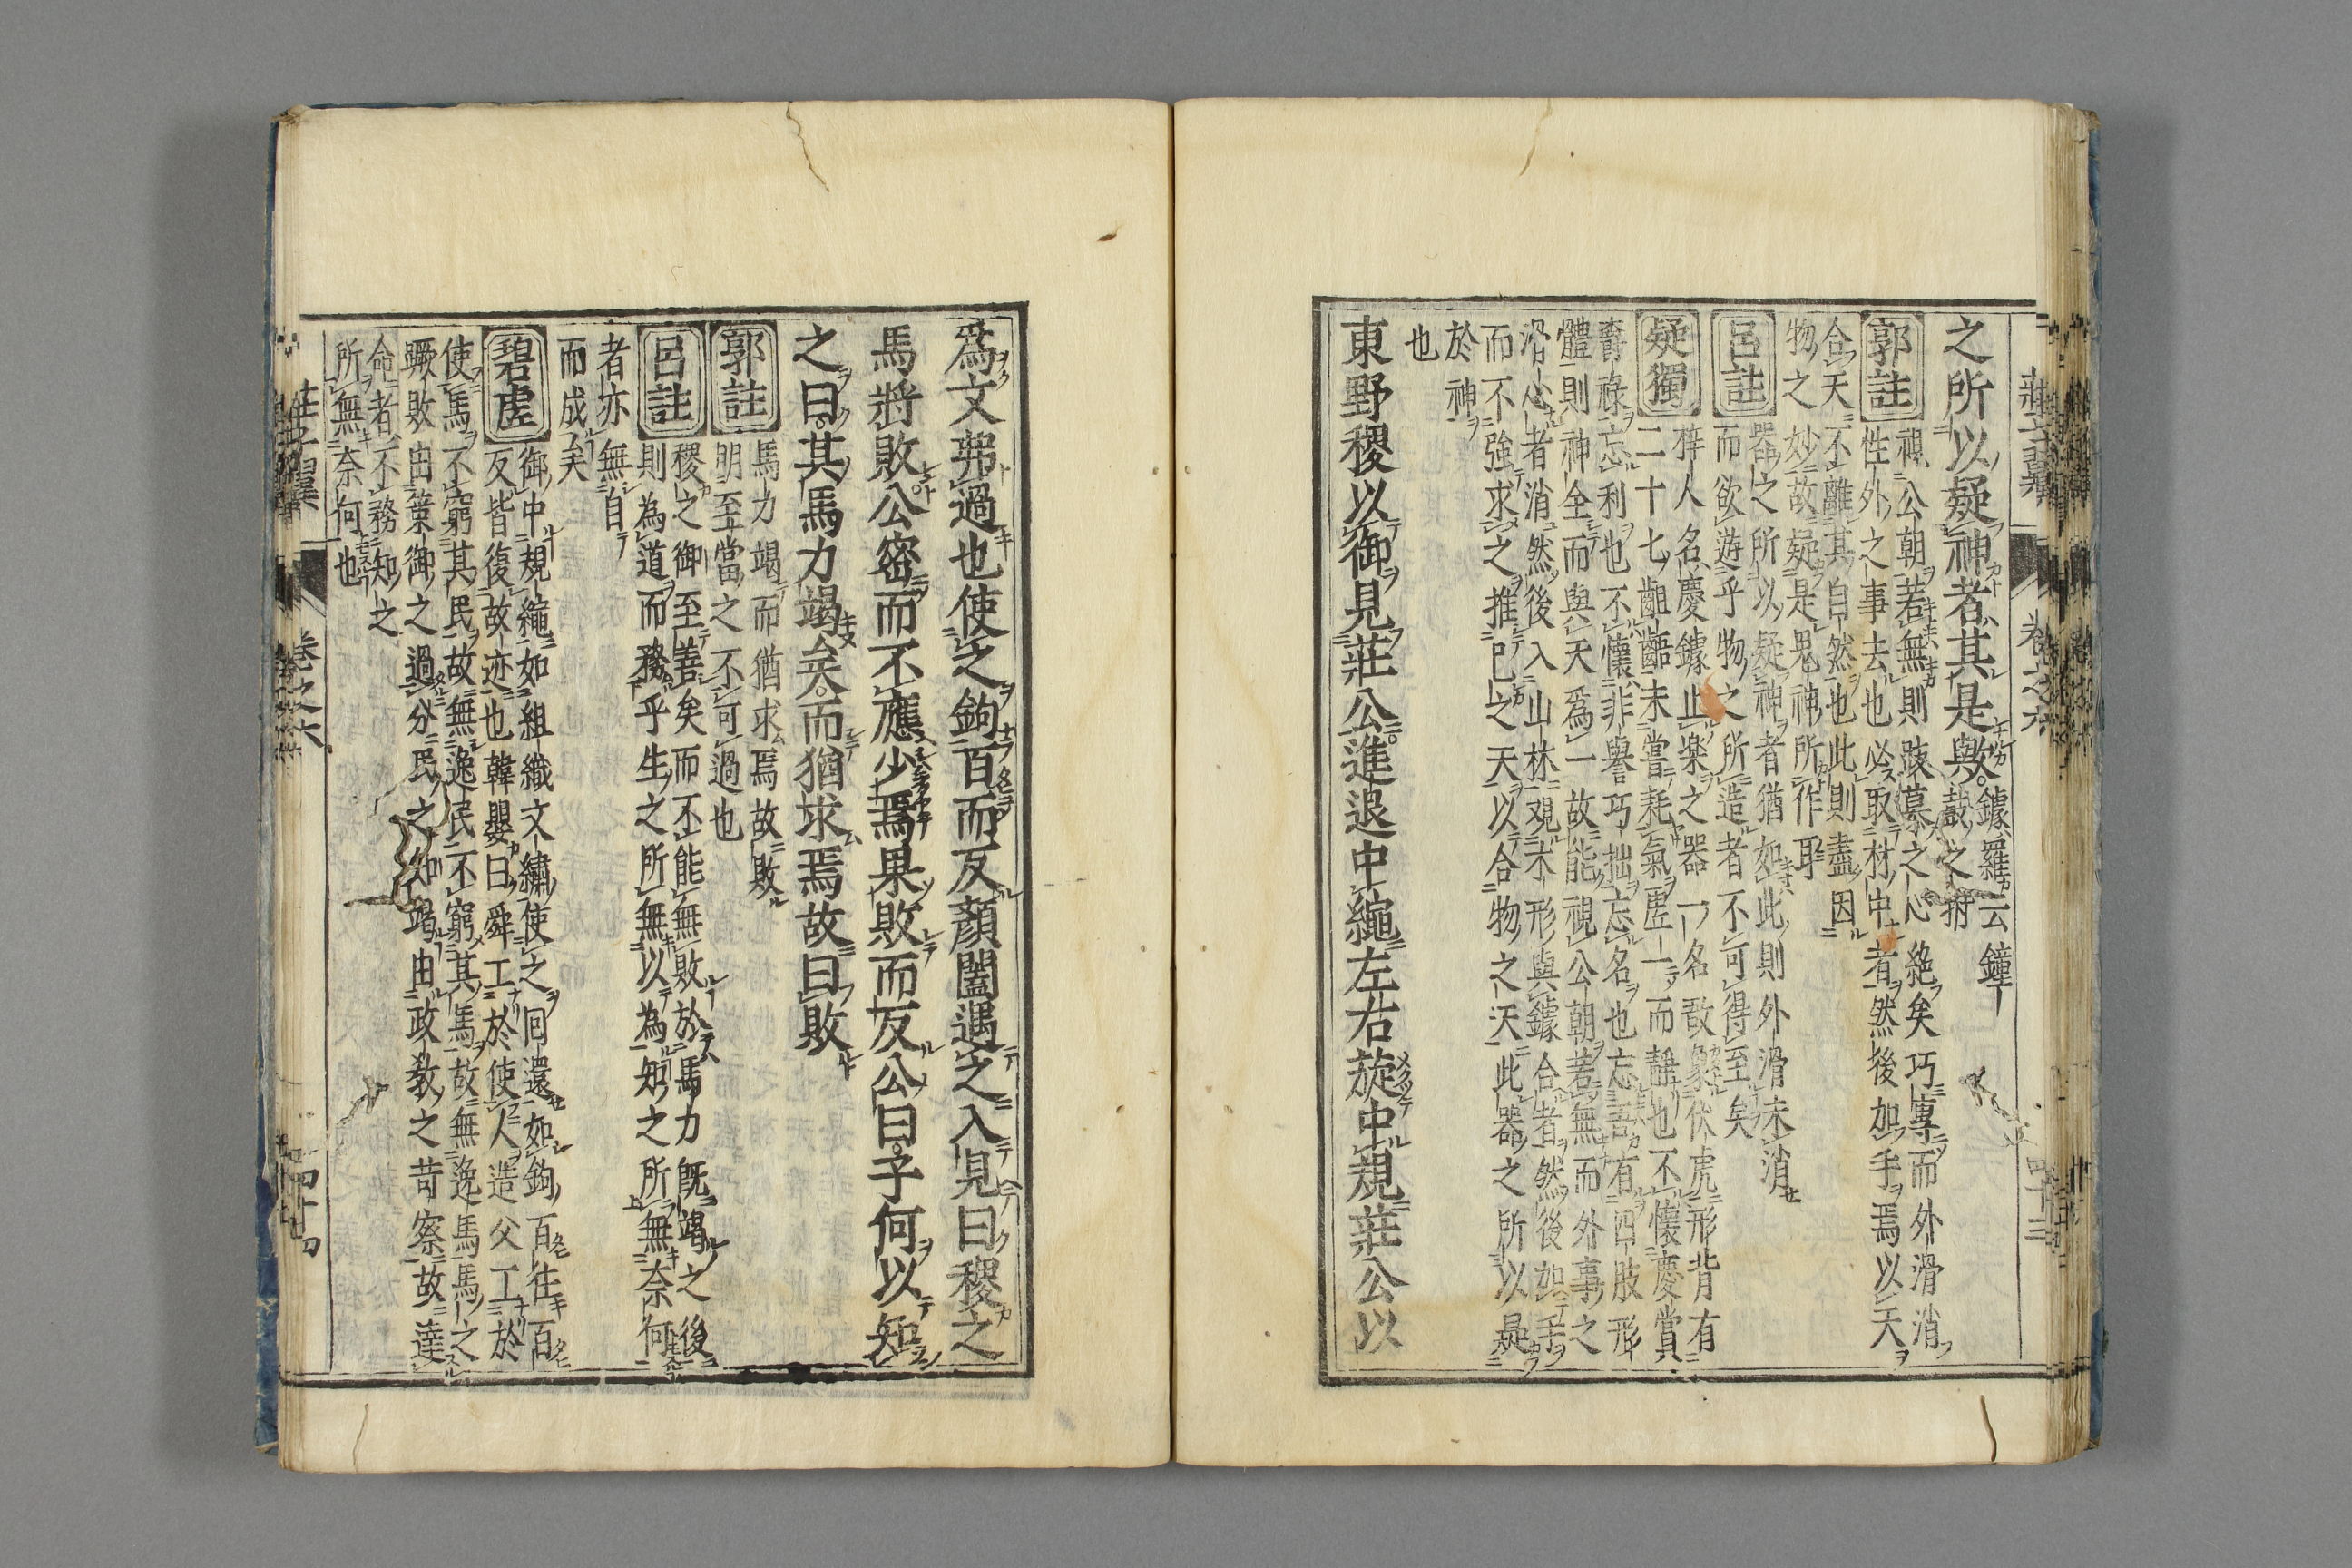 莊子翼 卷之六 四十三
之所以疑神者其是與。鐻羅云鐘
鼓之柎
郭註 視公朝若無則跂慕之心絶矣巧專而外滑消
性外之事去也必取材中者然後加手焉以天
合天不離其自然也此則盡因
物之妙故疑是鬼神所作耳
呂註 器之所以疑神者猶如此則外滑未消
而欲遊乎物之所造者不可得至矣
疑獨 梓人名慶鐻止楽之器一名敔象伏虎形背有
二十七齟齬未嘗耗氣虛一而靜也不懷慶賞
爵祿忘利也不懷非譽巧拙忘名也忘吾有四肢形
體則神全而與天爲一故能視公朝若無而外事之
滑心者消然後入山林観木形與鐻合者然後加手
而不強求之推己之天以合物之天此器之所以是
於神
也
東野稷以御見莊公。進退中繩左右旋中規莊公以
爲文弗過也使之鉤百而反顏闔遇之入見曰稷之
馬將敗。公密而不應少焉果敗而反公曰。子何以知
之曰。其馬力竭矣。而猶求焉故曰敗
郭註 馬力竭而猶求焉故敗
明至當之不可過也
呂註 稷之御至善矣而不能無敗於馬力既竭之後
則為道而務乎生之所無以為知之所無奈何
者亦無自
而成矣
碧虛 御中規繩如組織文繡使之回還如鉤百往百
反皆復故迹也韓嬰曰舜工於使人造父工於
使馬不窮其民故無逸民不窮其馬故無逸馬馬之
蹶敗由策御之過分民之知竭由政敎之苛察故達
命者不務知之
所無奈何也
莊子翼 卷之六 四十四